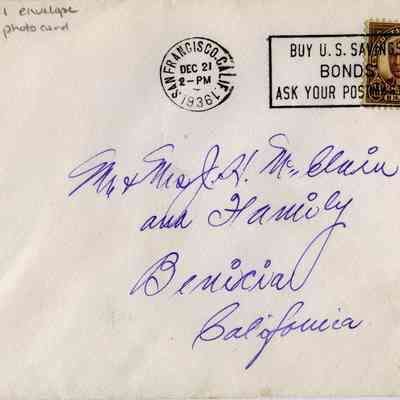 1 envelope
photo card
SAN FRANCISCO, CALIF.
DEC 21
2-PM
1936
BUY U.S. SAVINGS
BONDS
ASK YOUR POSTM
Mr & Mrs J. H. McClain
and Family
Benicia
California